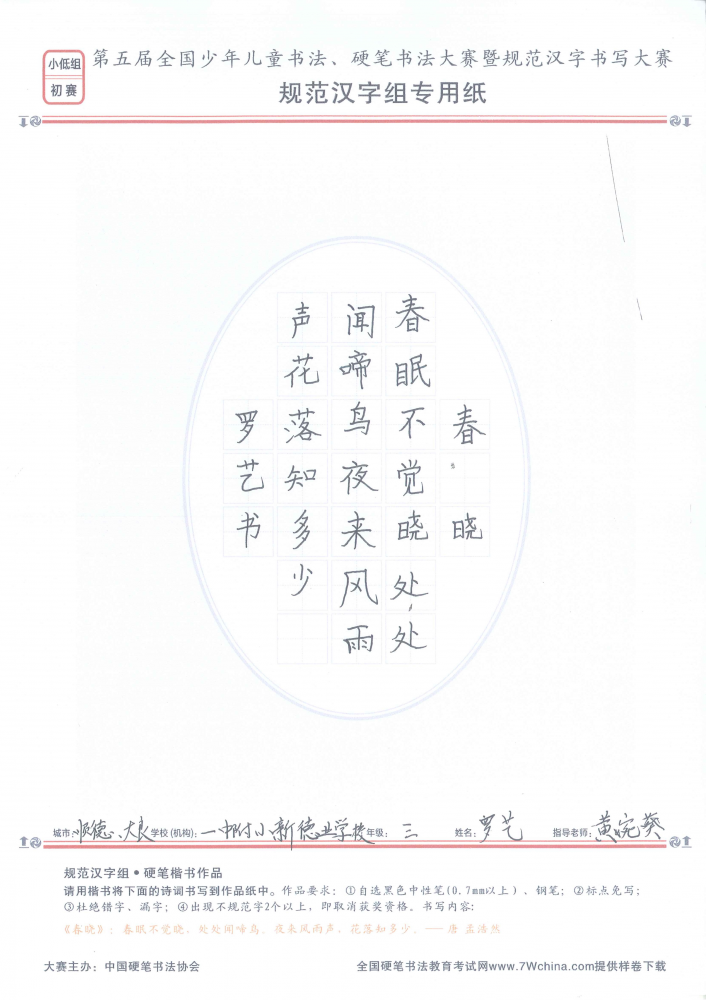 小低组
初赛
第五届全国少年儿童书法、硬笔书法大赛暨规范汉字书写大赛
规范汉字组专用纸
春晓
春眠不觉晓处处
闻啼鸟夜来风雨
声花落知多少
罗艺书
城市:顺德、大良 学校(机构):一中附小新德业学校 年级:三 姓名:罗艺 指导老师:黄宛葵
规范汉字组·硬笔楷书作品
请用楷书将下面的诗词书写到作品纸中。作品要求:①自选黑色中性笔(0.7mm以上)、钢笔;②标点免写;
③杜绝错字、漏字;④出现不规范字2个以上,即取消获奖资格。书写内容:
《春晓》:春眠不觉晓,处处闻啼鸟。夜来风雨声,花落知多少。——唐 孟浩然
大赛主办:中国硬笔书法协会 全国硬笔书法教育考试网www.7Wchina.com提供样卷下载